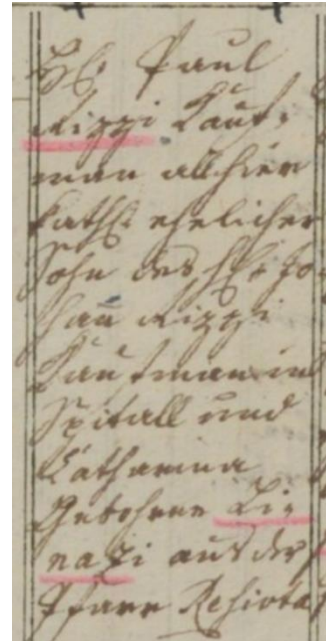 H: Paul
Rizzi Kauf-
man allhier
kath: ehelicher
Sohn des H: Jo-
hañ Rizzi
Kaufman in
Spitall und
Catharina
Gebohrne Li-
nazi aus der
Pfarr Resiuta